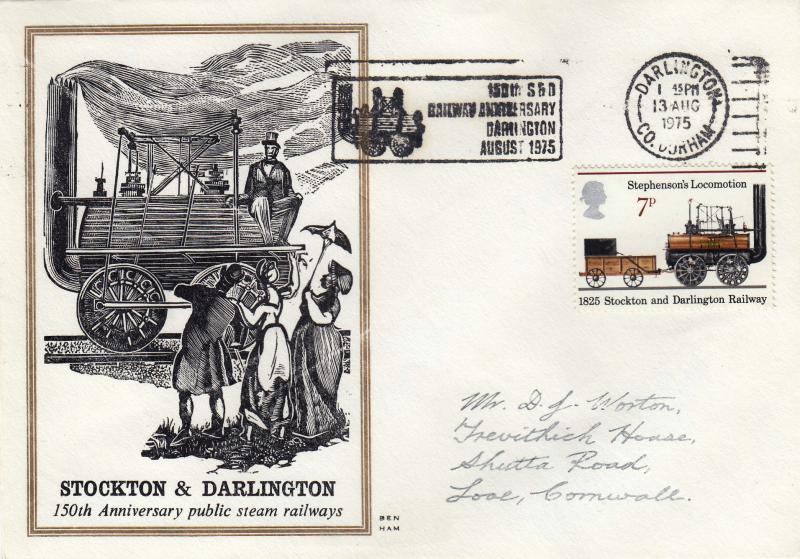 150th S & D
RAILWAY ANNIVERSARY
DARLINGTON
AUGUST 1975
DARLINGTON
1 15PM
13 AUG
1975
CO. DURHAM
Stephenson's Locomotion
7P
1825 Stockton and Darlington Railway
Mr. D. J. Worton,
Trevithick House,
Shutta Road,
Looe, Cornwall.
STOCKTON & DARLINGTON
150th Anniversary public steam railways
BEN
HAM